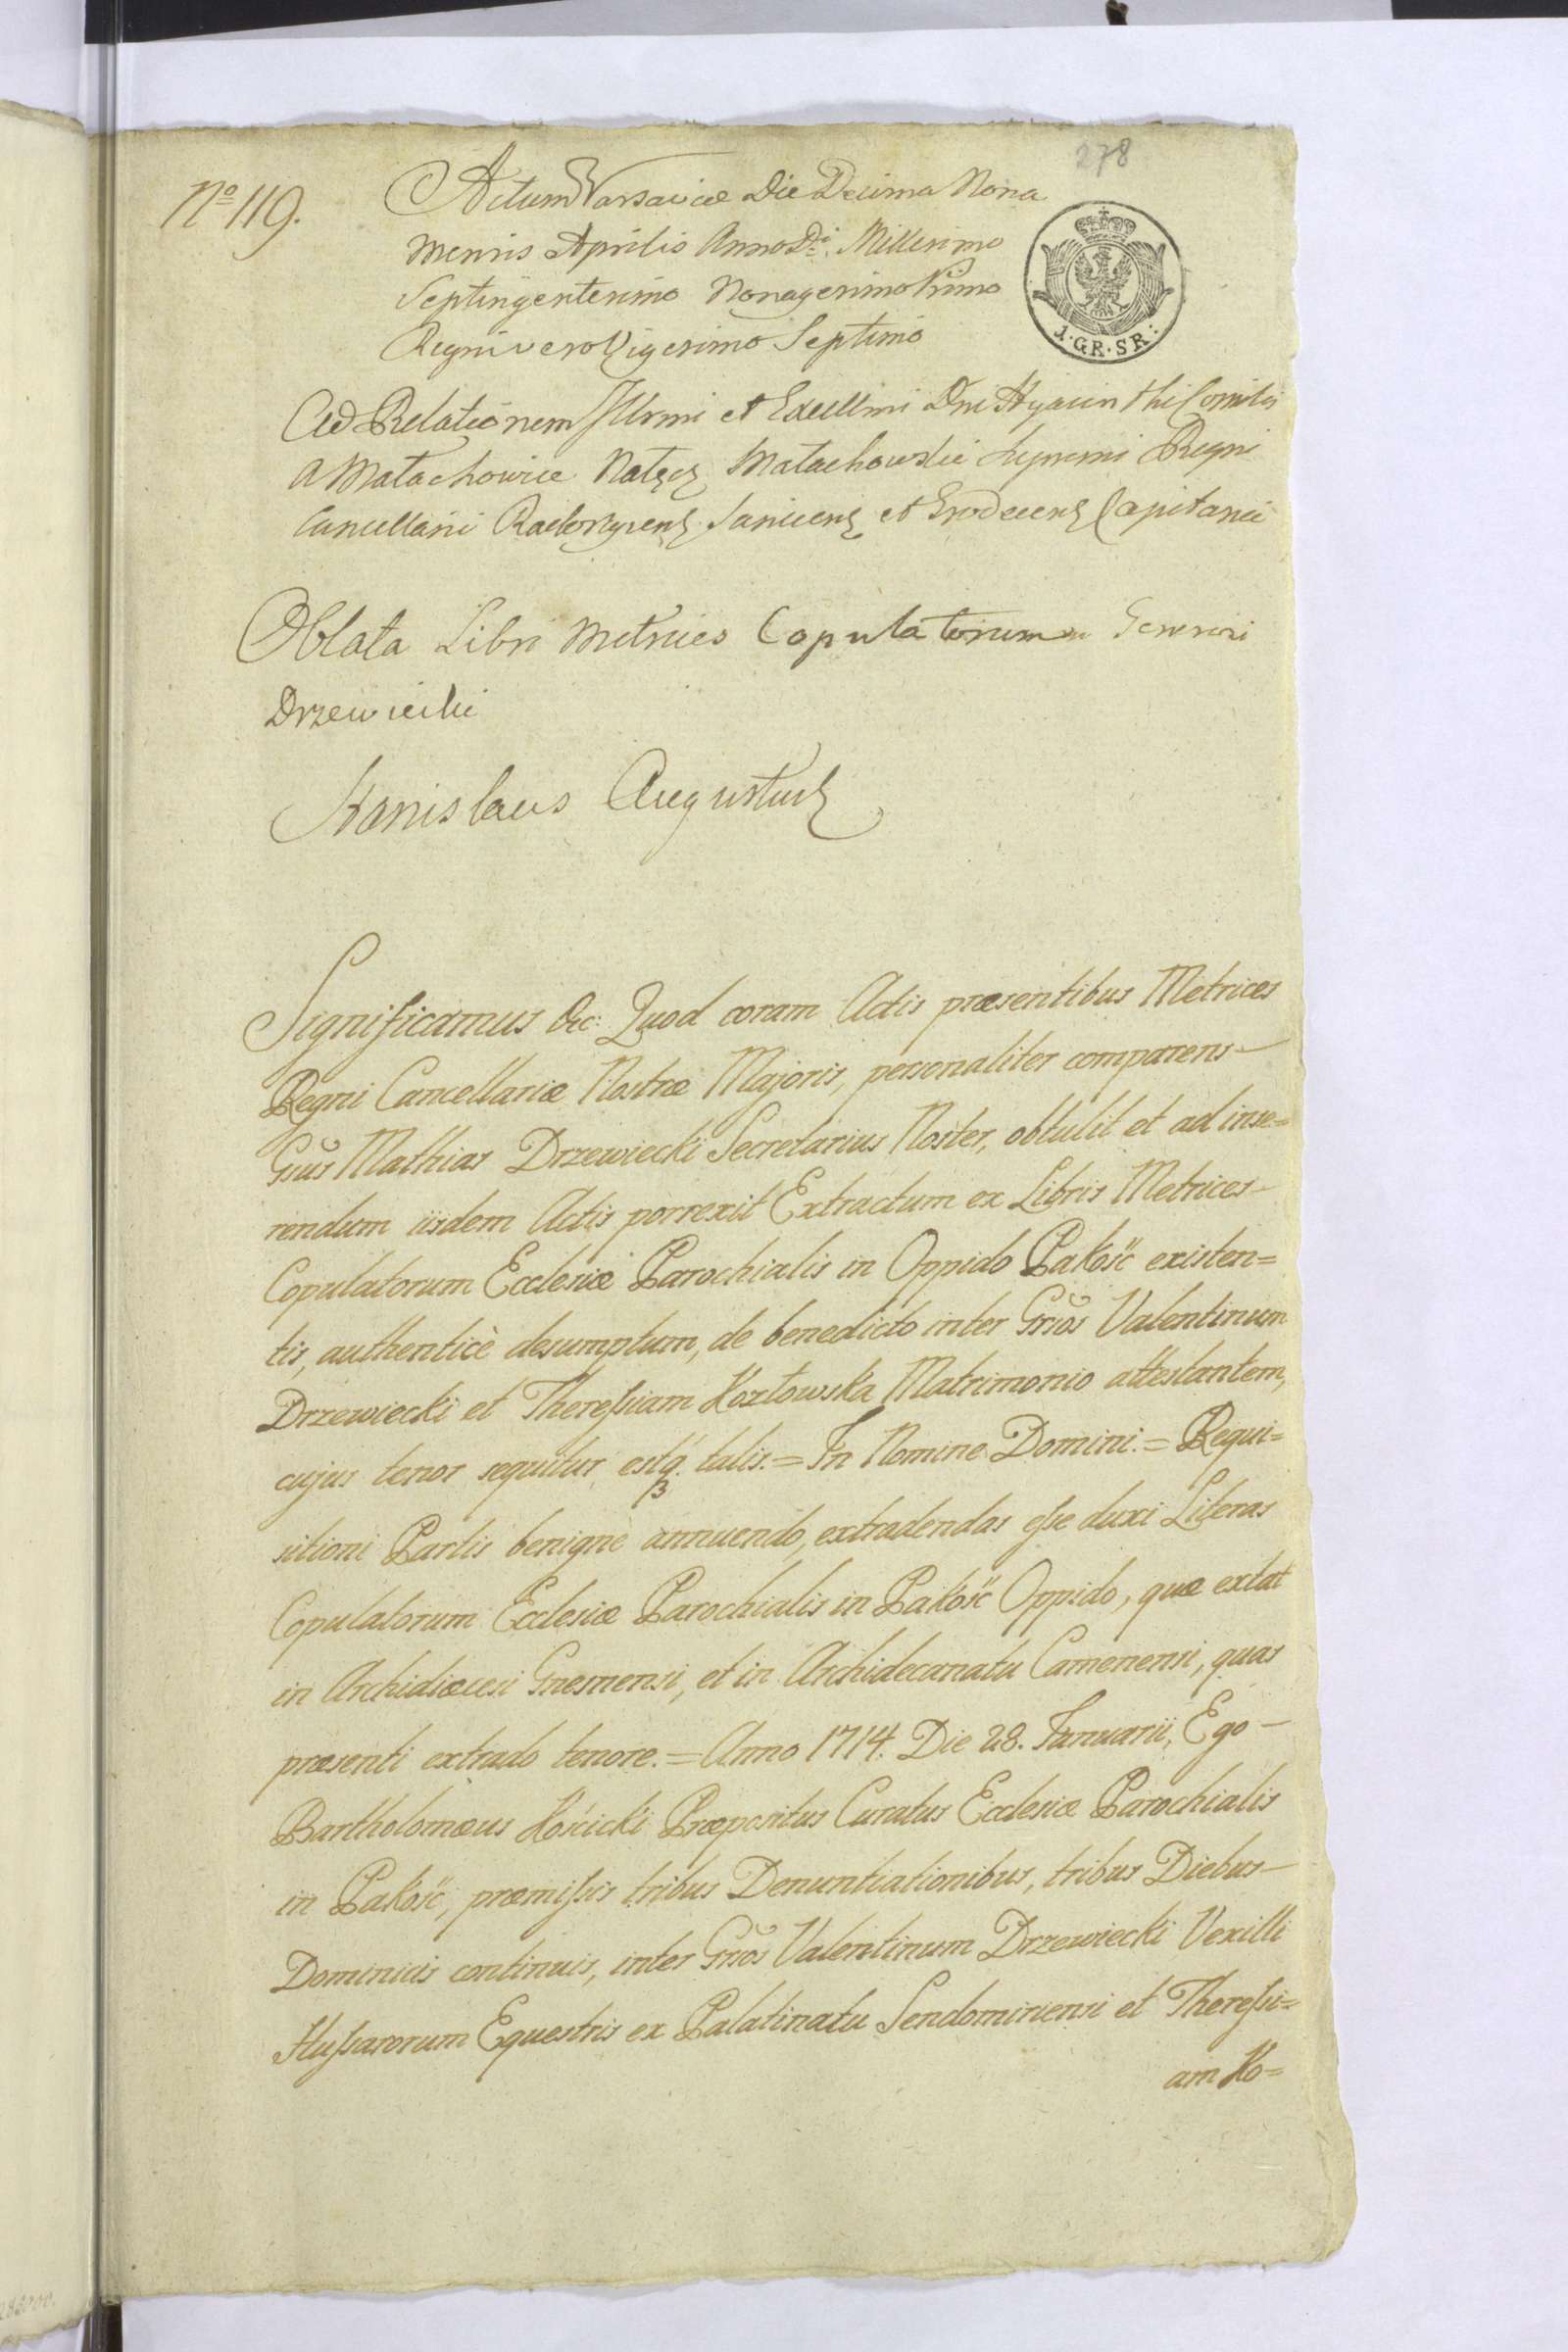 278
Nº 119.
Actum Varsaviae Die Decima Nona
Mensis Aprilis Anno Dni Millesimo
Septingentesimo Nonagesimo Primo
Regni vero Vigesimo Septimo
1. GR. SR:
Ad Relationem Illrmi et Excellmi Dni Hyacinthi Comitis
a Małachowice Nałęcz Małachowski Supremi Regni
Cancellarii Radoszycens Sanicens et Grodecens Capitanei
Oblata Libri Metrices Copulatorum Generosi
Drzewiecki
Stanislaus Augustus
Significamus &c: Quod coram Actis præsentibus Metrices
Regni Cancellariæ Nostræ Majoris, personaliter comparens
Gsus Mathias Drzewiecki Secretarius Noster, obtulit et ad inse=
rendum iisdem Actis porrexit Extractum ex Libris Metrices
Copulatorum Ecclesiæ Parochialis in Oppido Pakość existen=
tis, authenticè desumptum, de benedicto inter Grsos Valentinum
Drzewiecki et Theressiam Kozłowska Matrimonio attestantem,
cujus tenor sequitur estq. talis. = In Nomine Domini. = Requi=
sitioni Partis benignè annuendo, extradendas esse duxi Literas
Copulatorum Ecclesiæ Parochialis in Pakość Oppido, quæ extat
in Archidiæcesi Gnesnensi, et in Archidecanatu Camenensi, quas
præsenti extrado tenore. = Anno 1714. Die 28. Januarii, Ego
Bartholomæus Kościcki Præpositus Curatus Ecclesiæ Parochialis
in Pakość, præmissis tribus Denuntiationibus, tribus Diebus
Dominicis continuis, inter Grsos Valentinum Drzewiecki Vexilli
Hussarorum Equestris ex Palatinatu Sendomiriensi et Theressi=
am Ko=